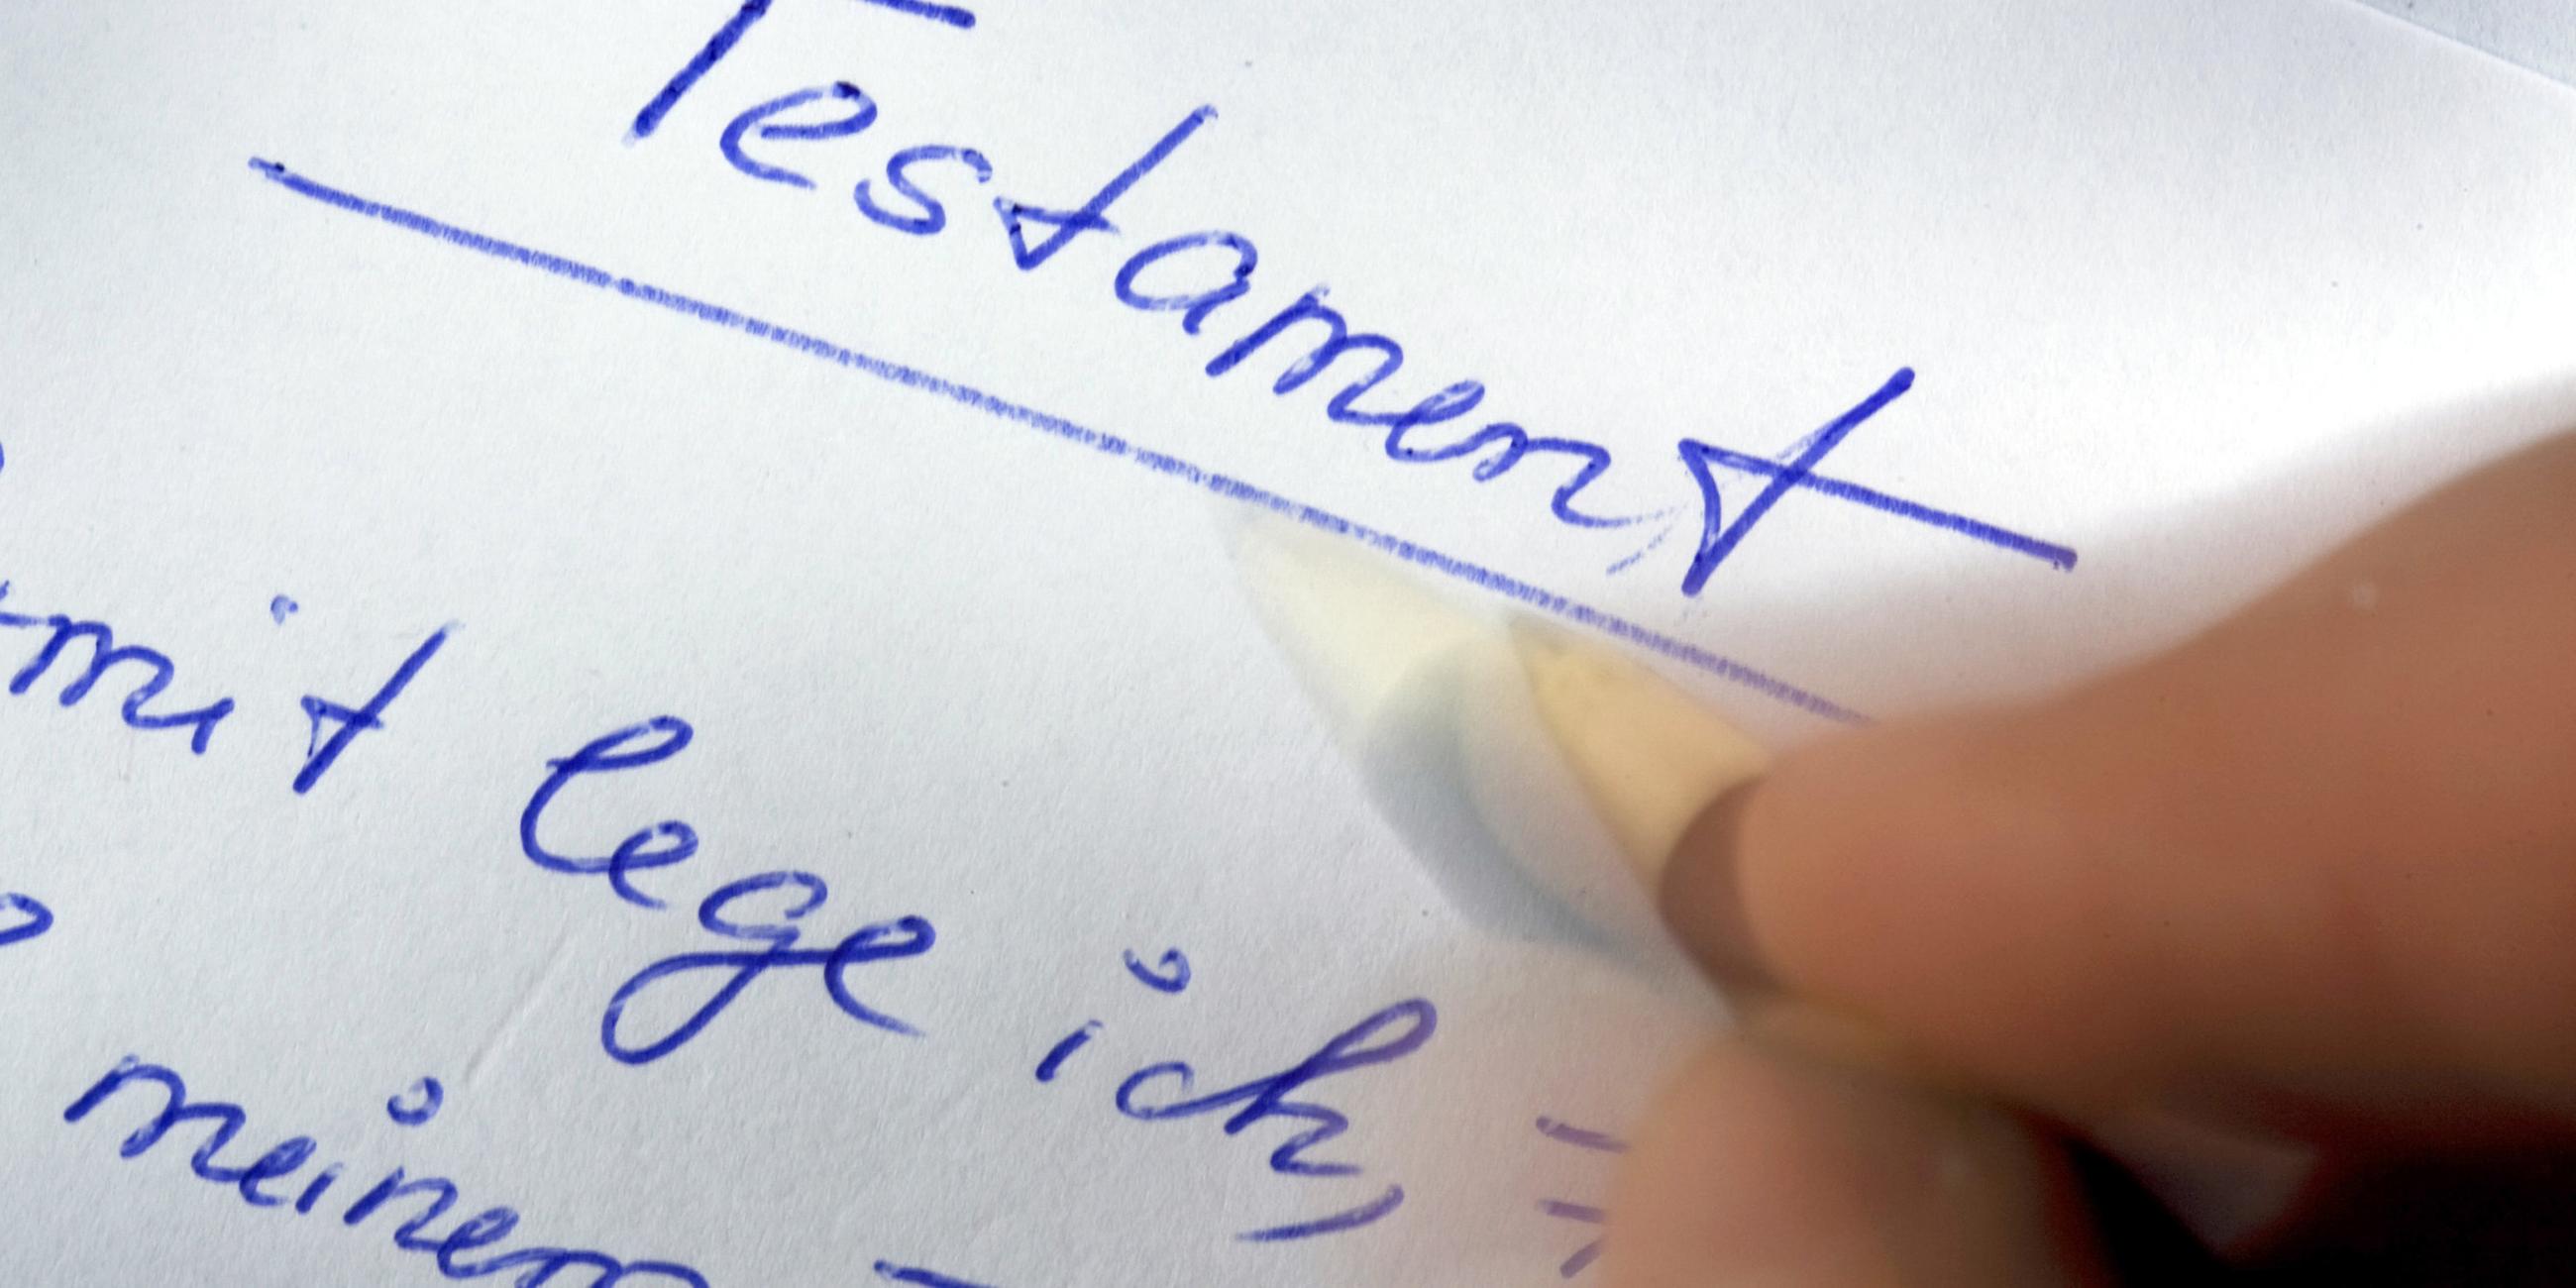 Testament
mit lege ich,
meinen